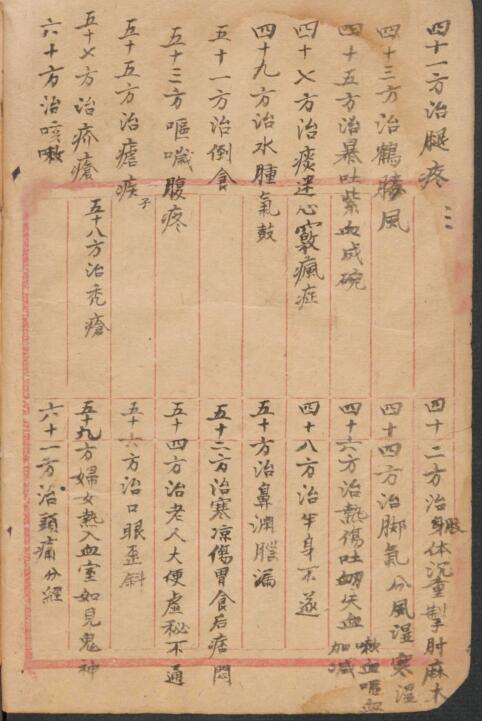 四十一方治腿疼
四十二方治身体沉重掣肘麻木
四十三方治鶴膝風
四十四方治脚氣分風湿寒湿
四十五方治暴吐紫血成碗
四十六方治熱傷吐衂失血 嗽血嘔血加减
四十七方治痰迷心竅瘋症
四十八方治半身不遂
四十九方治水腫氣鼓
五十方治鼻渊腦漏
五十一方治倒食
五十二方治寒凉傷胃食后痞悶
五十三方嘔喊腹疼
五十四方治老人大便虛秘不通
五十五方治瘧疾子
五十六方治口眼歪斜
五十七方治疥瘡
五十八方治禿瘡
五十九方婦女熱入血室如見鬼神
六十方治咳嗽
六十一方治頭痛分經